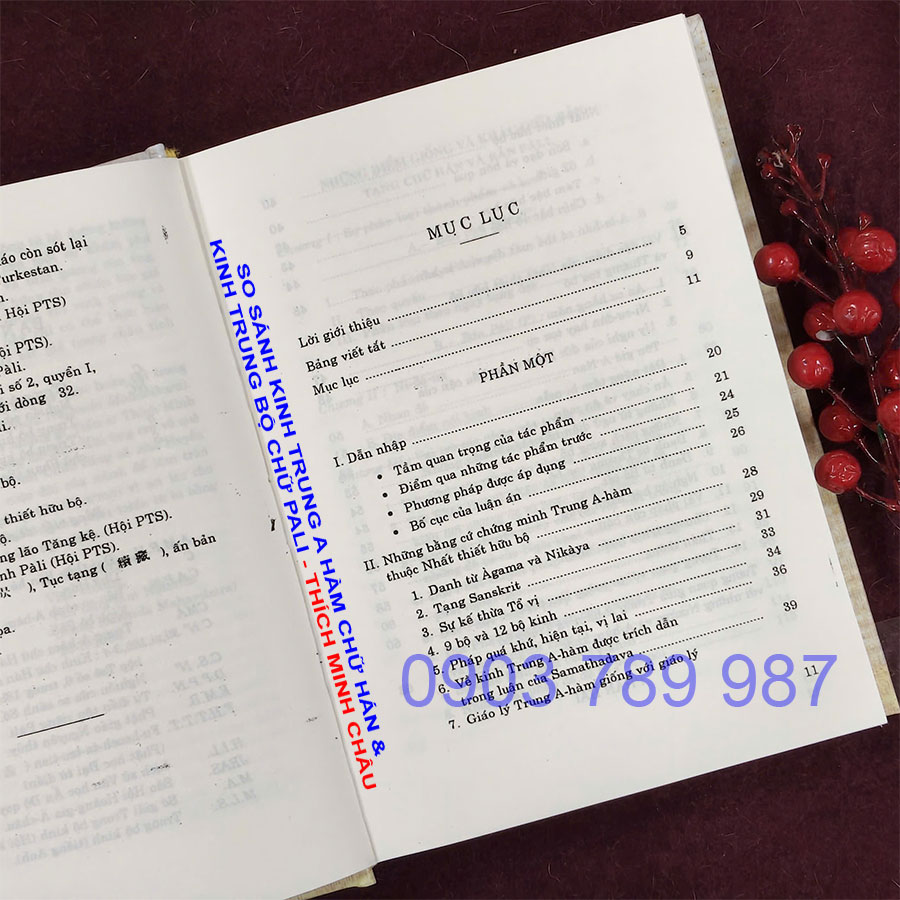 áo còn sót lại
urkestan.
n.
Hội PTS)
ội PTS).
Pàli.
i số 2, quyển I,
ới dòng 32.
li.
bộ.
thiết hữu bộ.
ộ.
ng lão Tăng kệ. (Hội PTS).
nh Pàli (Hội PTS).
), Tục tạng ( 續藏 ), ấn bản
oa.
SO SÁNH KINH TRUNG A HÀM CHỮ HÁN &
KINH TRUNG BỘ CHỮ PALI - THÍCH MINH CHÂU
MỤC LỤC
Lời giới thiệu 5
Bảng viết tắt 9
Mục lục 11
PHẦN MỘT
I. Dẫn nhập 20
• Tầm quan trọng của tác phẩm 21
• Điểm qua những tác phẩm trước 24
• Phương pháp được áp dụng 25
• Bố cục của luận án 26
II. Những bằng cứ chứng minh Trung A-hàm
thuộc Nhất thiết hữu bộ 28
1. Danh từ Àgama và Nikàya 29
2. Tạng Sanskrit 31
3. Sự kế thừa Tổ vị 33
4. 9 bộ và 12 bộ kinh 34
5. Pháp quá khứ, hiện tại, vị lai 36
6. Về kinh Trung A-hàm được trích dẫn
trong luận của Samathadava 39
7. Giáo lý Trung A-hàm giống với giáo lý
11
0903 789 987